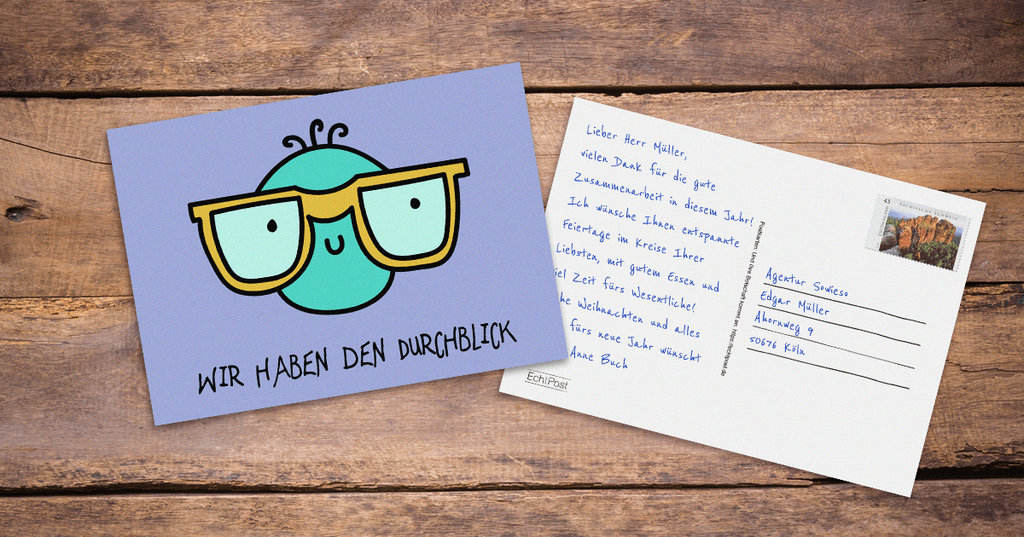 WIR HABEN DEN DURCHBLICK
Lieber Herr Müller,
vielen Dank für die gute
Zusammenarbeit in diesem Jahr!
Ich wünsche Ihnen entspannte
Feiertage im Kreise Ihrer
Liebsten, mit gutem Essen und
Zeit fürs Wesentliche!
Weihnachten und alles
fürs neue Jahr wünscht
Anne Buch
EchtPost
45
SÄCHSISCHE SCHWEIZ
Agentur Sowieso
Edgar Müller
Ahornweg 9
50676 Köln